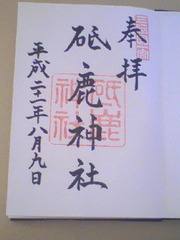 奉拝
砥鹿神社
平成二十一年八月九日
砥鹿神社